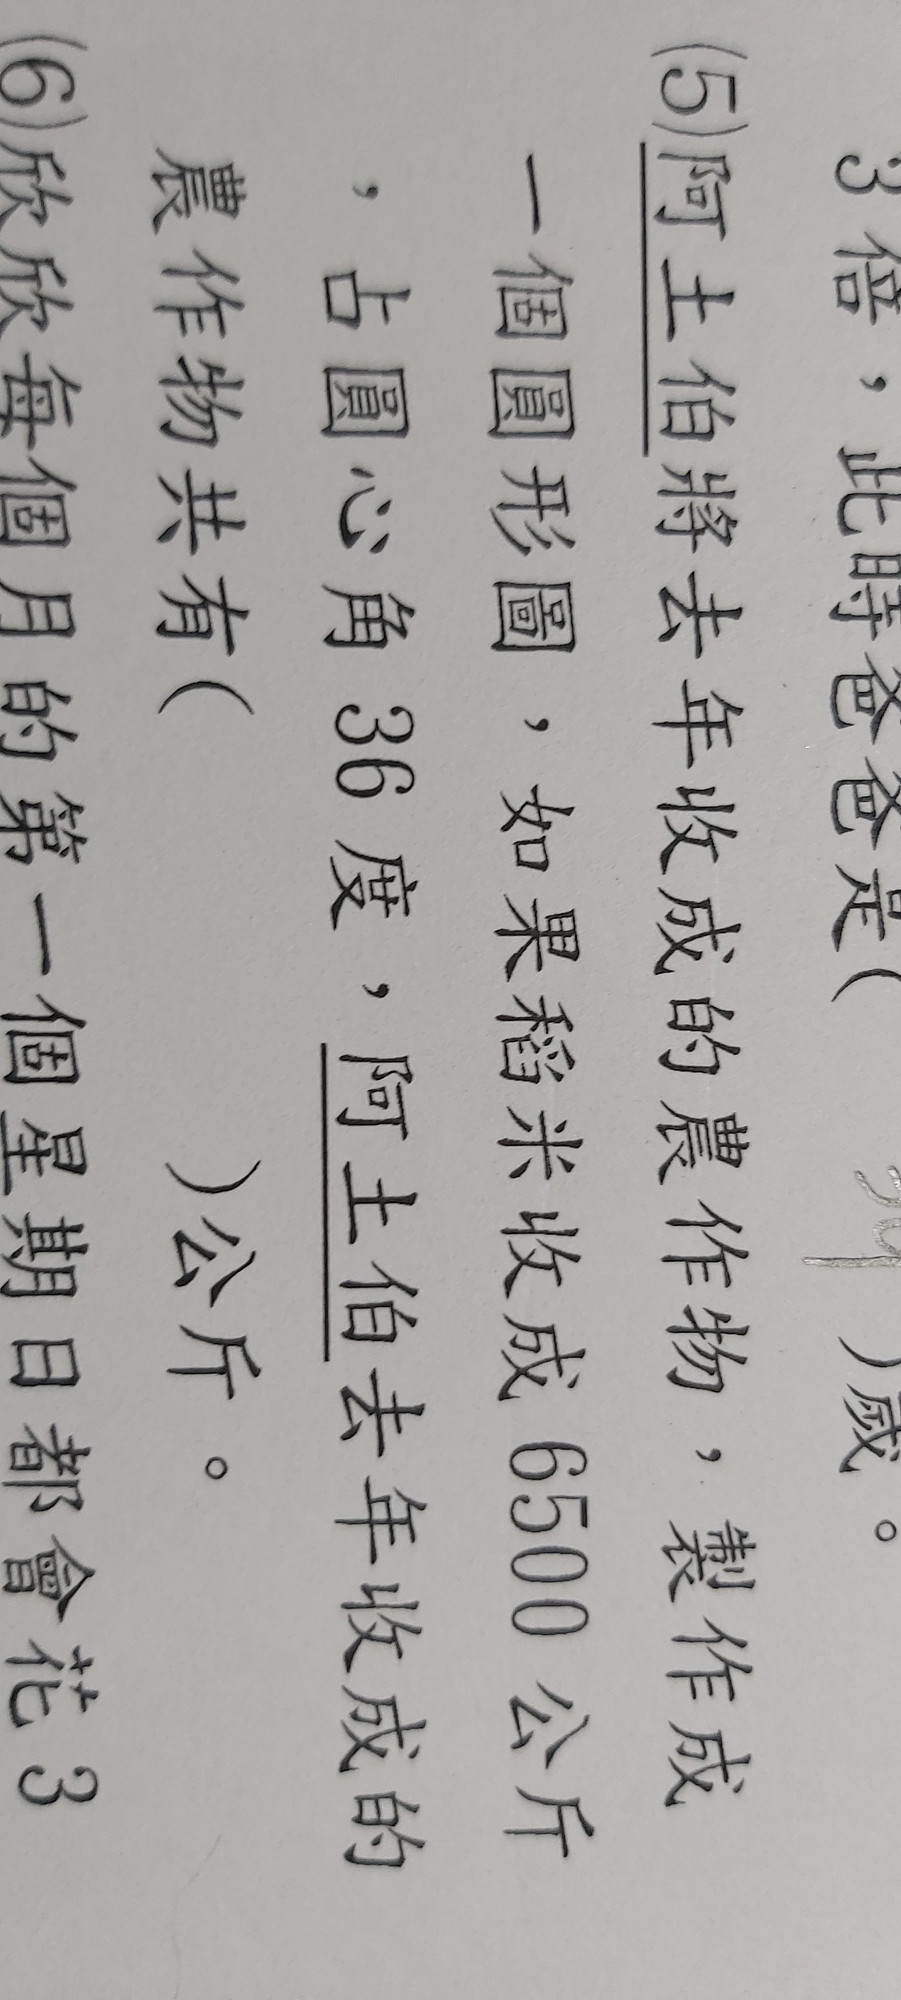 3 倍，此時爸爸是( 39 )歲。
(5)阿土伯將去年收成的農作物，製作成
一個圓形圖，如果稻米收成 6500 公斤
，占圓心角 36 度，阿土伯去年收成的
農作物共有( )公斤。
(6)欣欣每個月的第一個星期日都會花 3